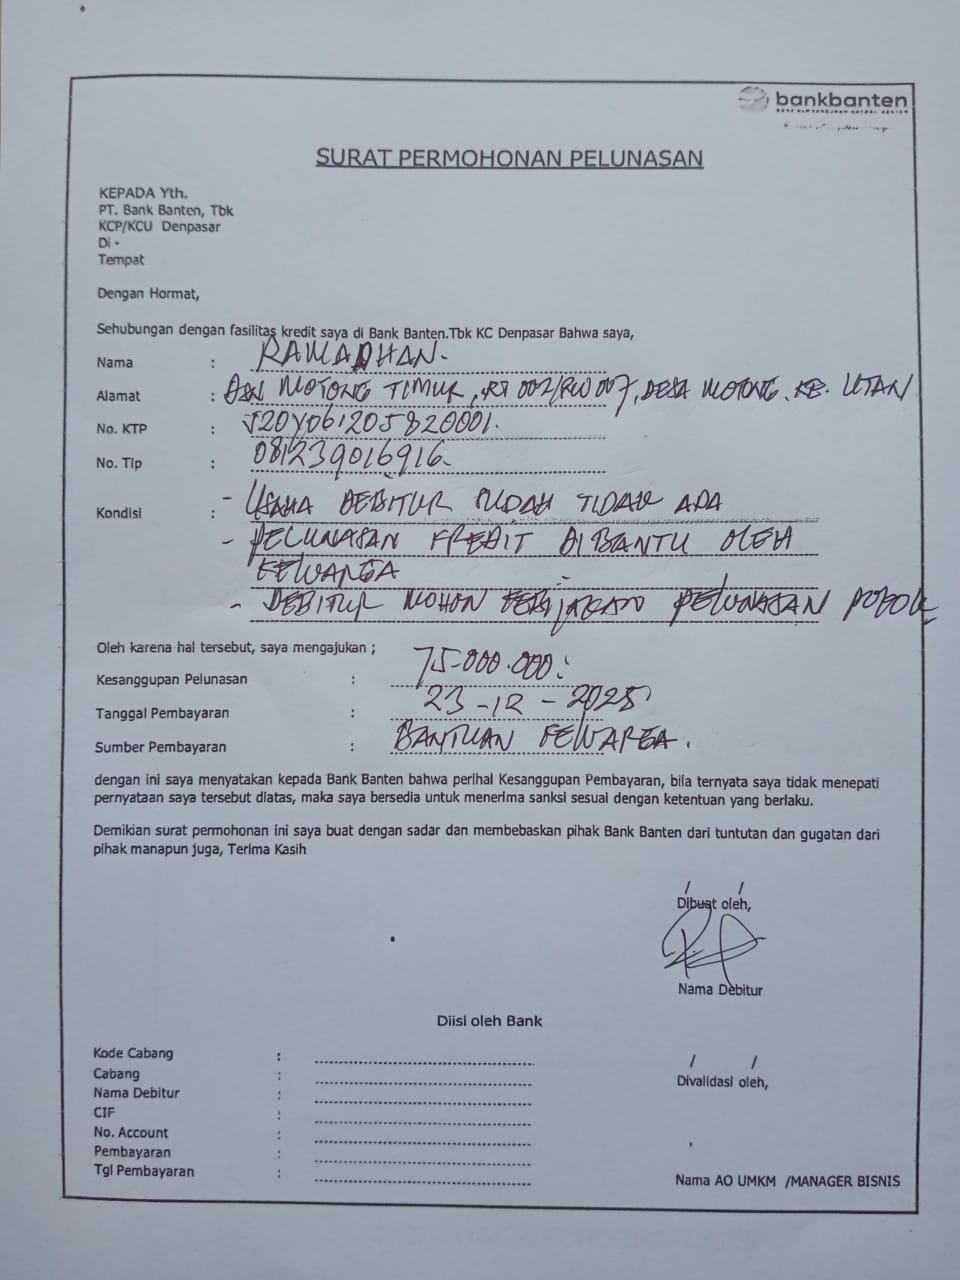 bankbanten
SURAT PERMOHONAN PELUNASAN
KEPADA Yth.
PT. Bank Banten, Tbk
KCP/KCU Denpasar
Di -
Tempat
Dengan Hormat,
Sehubungan dengan fasilitas kredit saya di Bank Banten.Tbk KC Denpasar Bahwa saya,
Nama : RAMADHAN.
Alamat : DSN MOTONG TIMUR, RT 002/RW 007, DESA MOTONG, KEC. UTAN
No. KTP : 5204061205820001.
No. Tlp : 081239016916.
Kondisi : - USAHA DEBITUR SUDAH TIDAK ADA
- PELUNASAN KREDIT DIBANTU OLEH
KELUARGA
- DEBITUR MOHON KEBIJAKAN PELUNASAN POKOK
Oleh karena hal tersebut, saya mengajukan ;
Kesanggupan Pelunasan : 75.000.000.
Tanggal Pembayaran : 23-12-2025
Sumber Pembayaran : BANTUAN KELUARGA.
dengan ini saya menyatakan kepada Bank Banten bahwa perihal Kesanggupan Pembayaran, bila ternyata saya tidak menepati
pernyataan saya tersebut diatas, maka saya bersedia untuk menerima sanksi sesuai dengan ketentuan yang berlaku.
Demikian surat permohonan ini saya buat dengan sadar dan membebaskan pihak Bank Banten dari tuntutan dan gugatan dari
pihak manapun juga, Terima Kasih
/ /
Dibuat oleh,
Nama Debitur
Diisi oleh Bank
Kode Cabang :
Cabang :
Nama Debitur :
CIF :
No. Account :
Pembayaran :
Tgl Pembayaran :
/ /
Divalidasi oleh,
Nama AO UMKM /MANAGER BISNIS